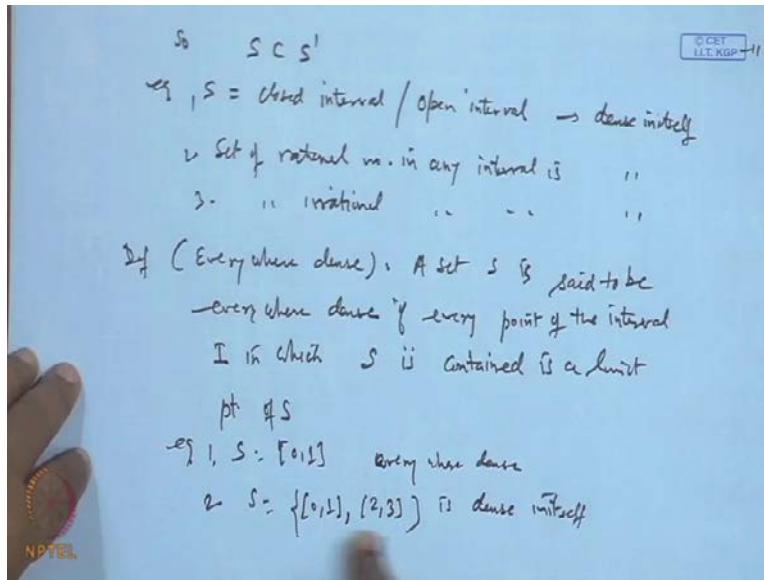 So S ⊂ S'
© CET
I.I.T. KGP
11
eg 1, S = closed interval / open interval → dense initself
2. Set of rational no. in any interval is "
3. " irrational " " "
Def (Everywhere dense). A set S is said to be
everywhere dense if every point of the interval
I in which S is contained is a limit
pt. of S
eg 1, S = [0,1] every where dense
2. S = {[0,1], [2,3]} is dense initself
NPTEL